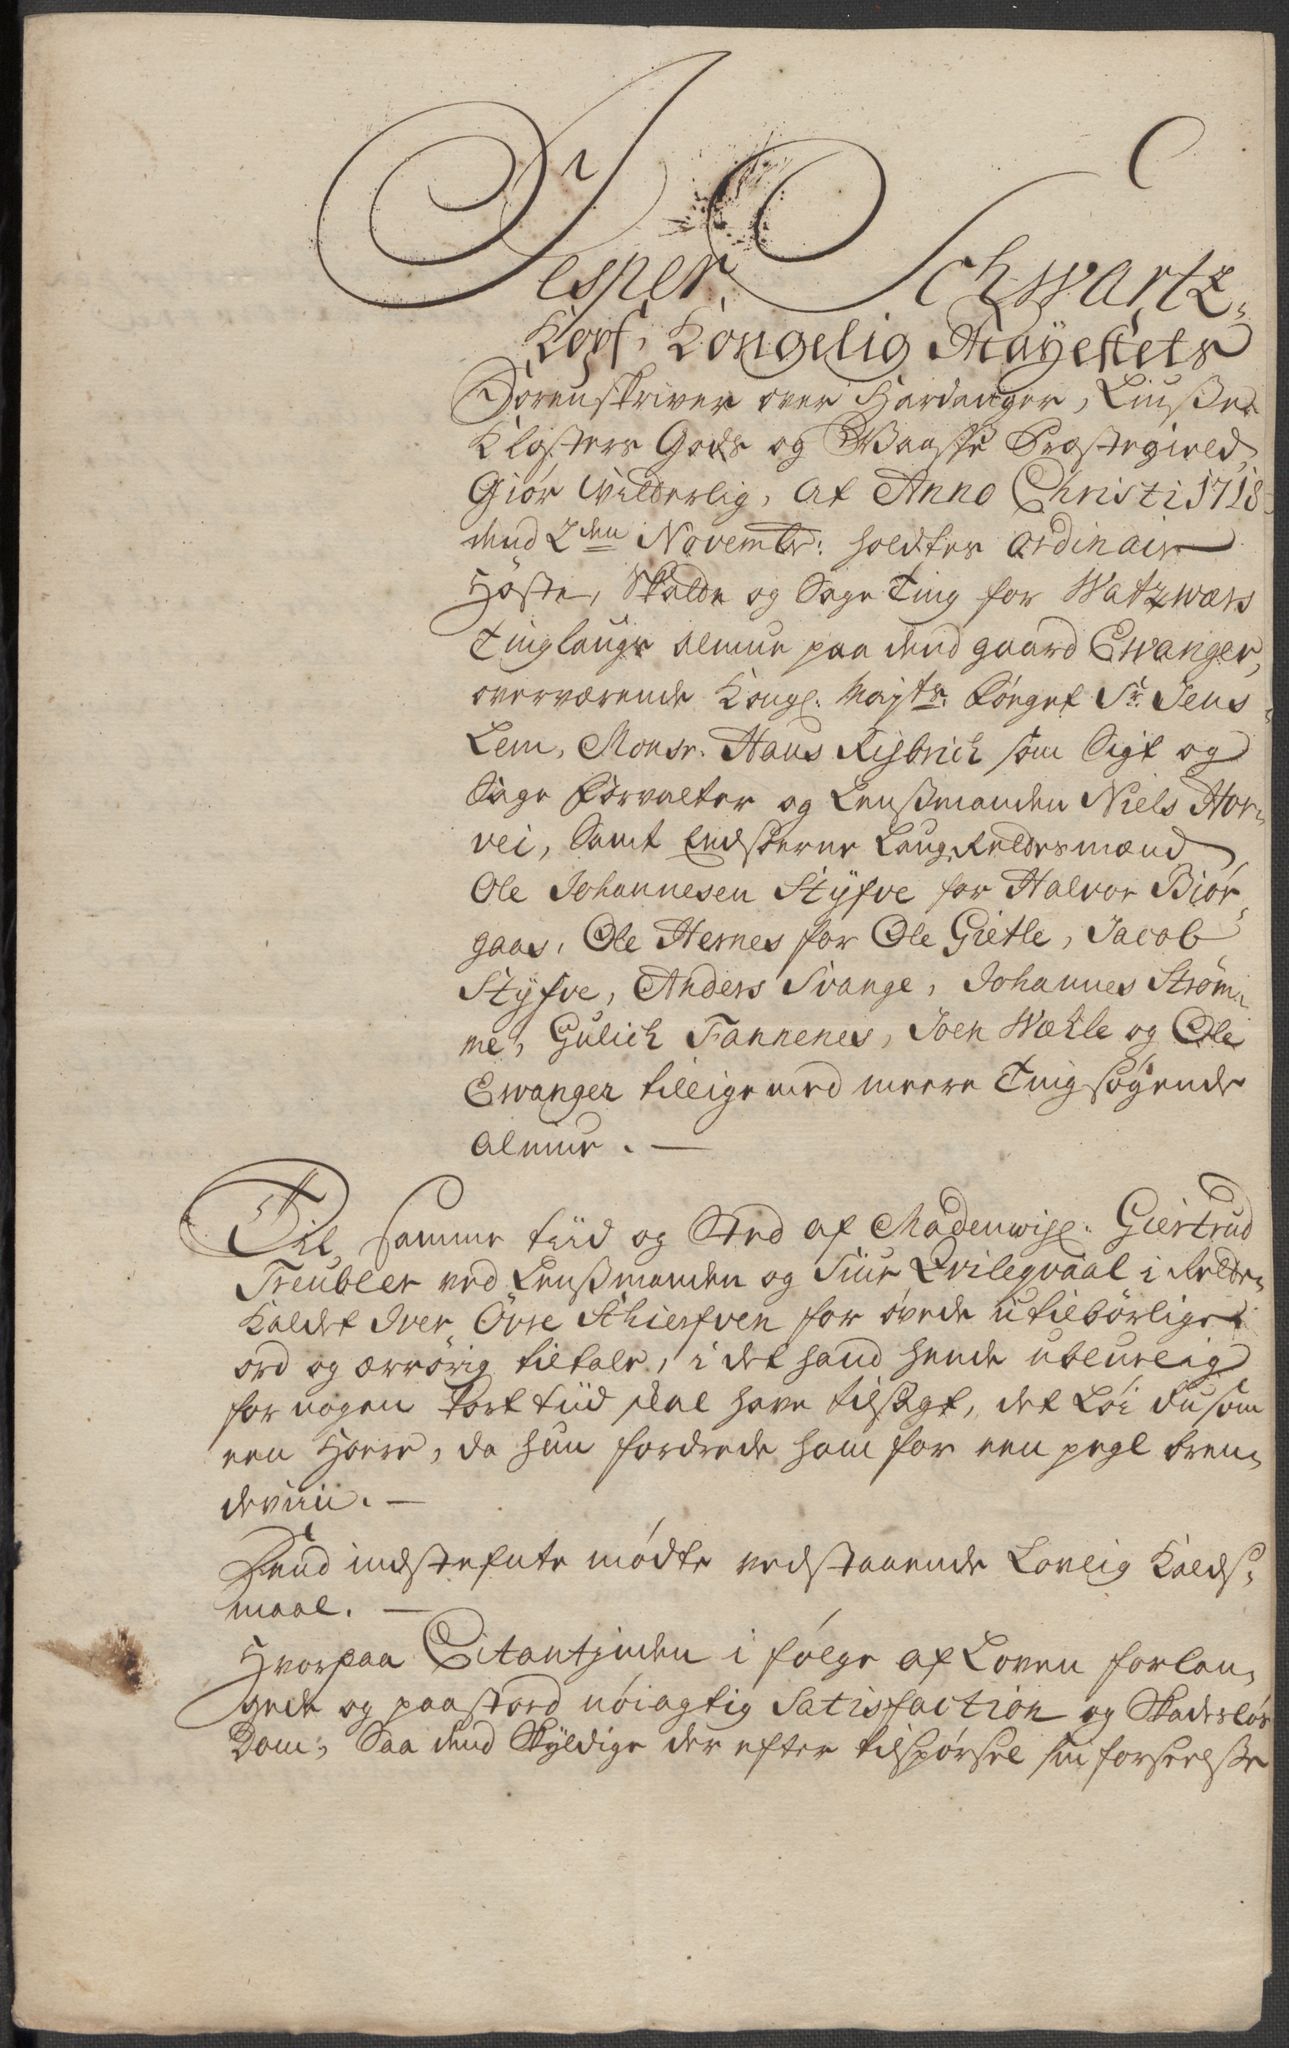 Jesper Schwartz-
Kopf, Kongelig Mayestets
Sorenskriver over Hardanger, Liuße
Klosters Gods og Waaße Præstegield
Giör Witterlig, At Anno Christi 1718
dend 2den Novembr: holdtes ordinair
Höste, Skatte og Sage Ting for Watzwærs
Tinglaugs Almue paa dend gaard Ewanger,
overværende Kongl. Mayts. Foeget Sr. Jens
Lem, Monsr. Hans Rijbrich som Sigt og
Sage Forvalter og Lenßmanden Niels Hor-
vei, Samt Eedsvorne Laug Rettesmænd
Ole Johannesen Styfve for Halvor Biör-
gaas, Ole Hernes for Ole Gietle, Jacob
Styfve, Anders Svange, Johannes Ström-
me, Gulich Fannenes, Joen Wæhle og Ole
Ewanger tillige med meere Ting søgende
Almue. —
Til samme tiid og Sted af Madmoisl. Giertrud
Treubler ved Lenßmanden og Siur Qvilegvaal i Rette-
Kaldet Iver Öfre Skierfven for øvede utilbørliget
ord og ærrørig tiltale, i det hand hende ubeluelig
for nogen kort tiid skal have tilsagt, det Löi du som
een Hoere, da hun fordrede ham for een pegl bren-
deviin. —
Dend indstefnte mødte vedstaaende Lovlig Kalds-
maal. —
Hvorpaa Citantinden i følge af Loven forlan-
gede og paastoed nöiagtig Satisfaction og Skadesløs
Dom, Saa dend Skyldige der efter tilspørsel sin forseelße